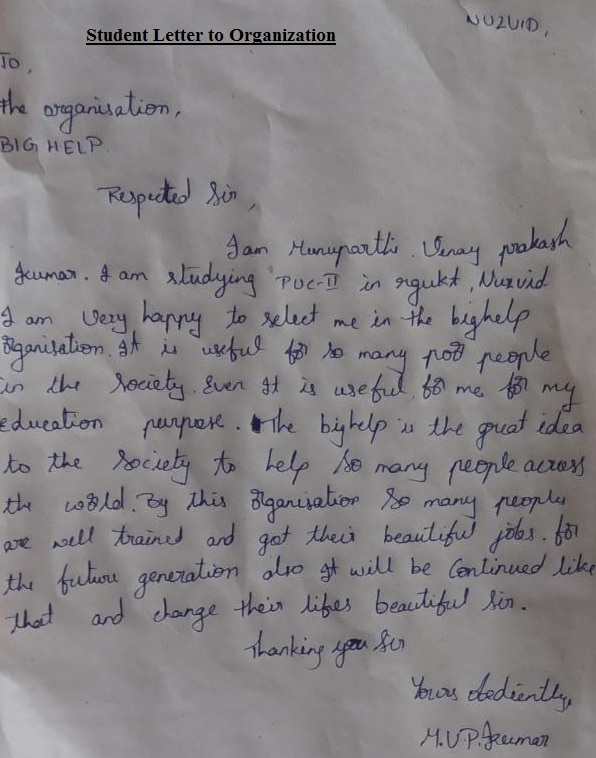 NUZVID,
Student Letter to Organization
To,
the organisation,
BIG HELP
Respected Sir,
I am Munuparthi. Vinay prakash
kumar. I am studying PUC-II in rgukt, Nuzvid
I am very happy to select me in the bighelp
Organisation. It is useful for so many poor people
in the society. Even It is useful for me for my
education purpose. The bighelp is the great idea
to the society to help so many people across
the world. By this Organisation so many people
are well trained and got their beautiful jobs. for
the future generation also It will be continued like
that and change their lifes beautiful sir.
Thanking you Sir
Yours obediently,
M.V.P.kumar